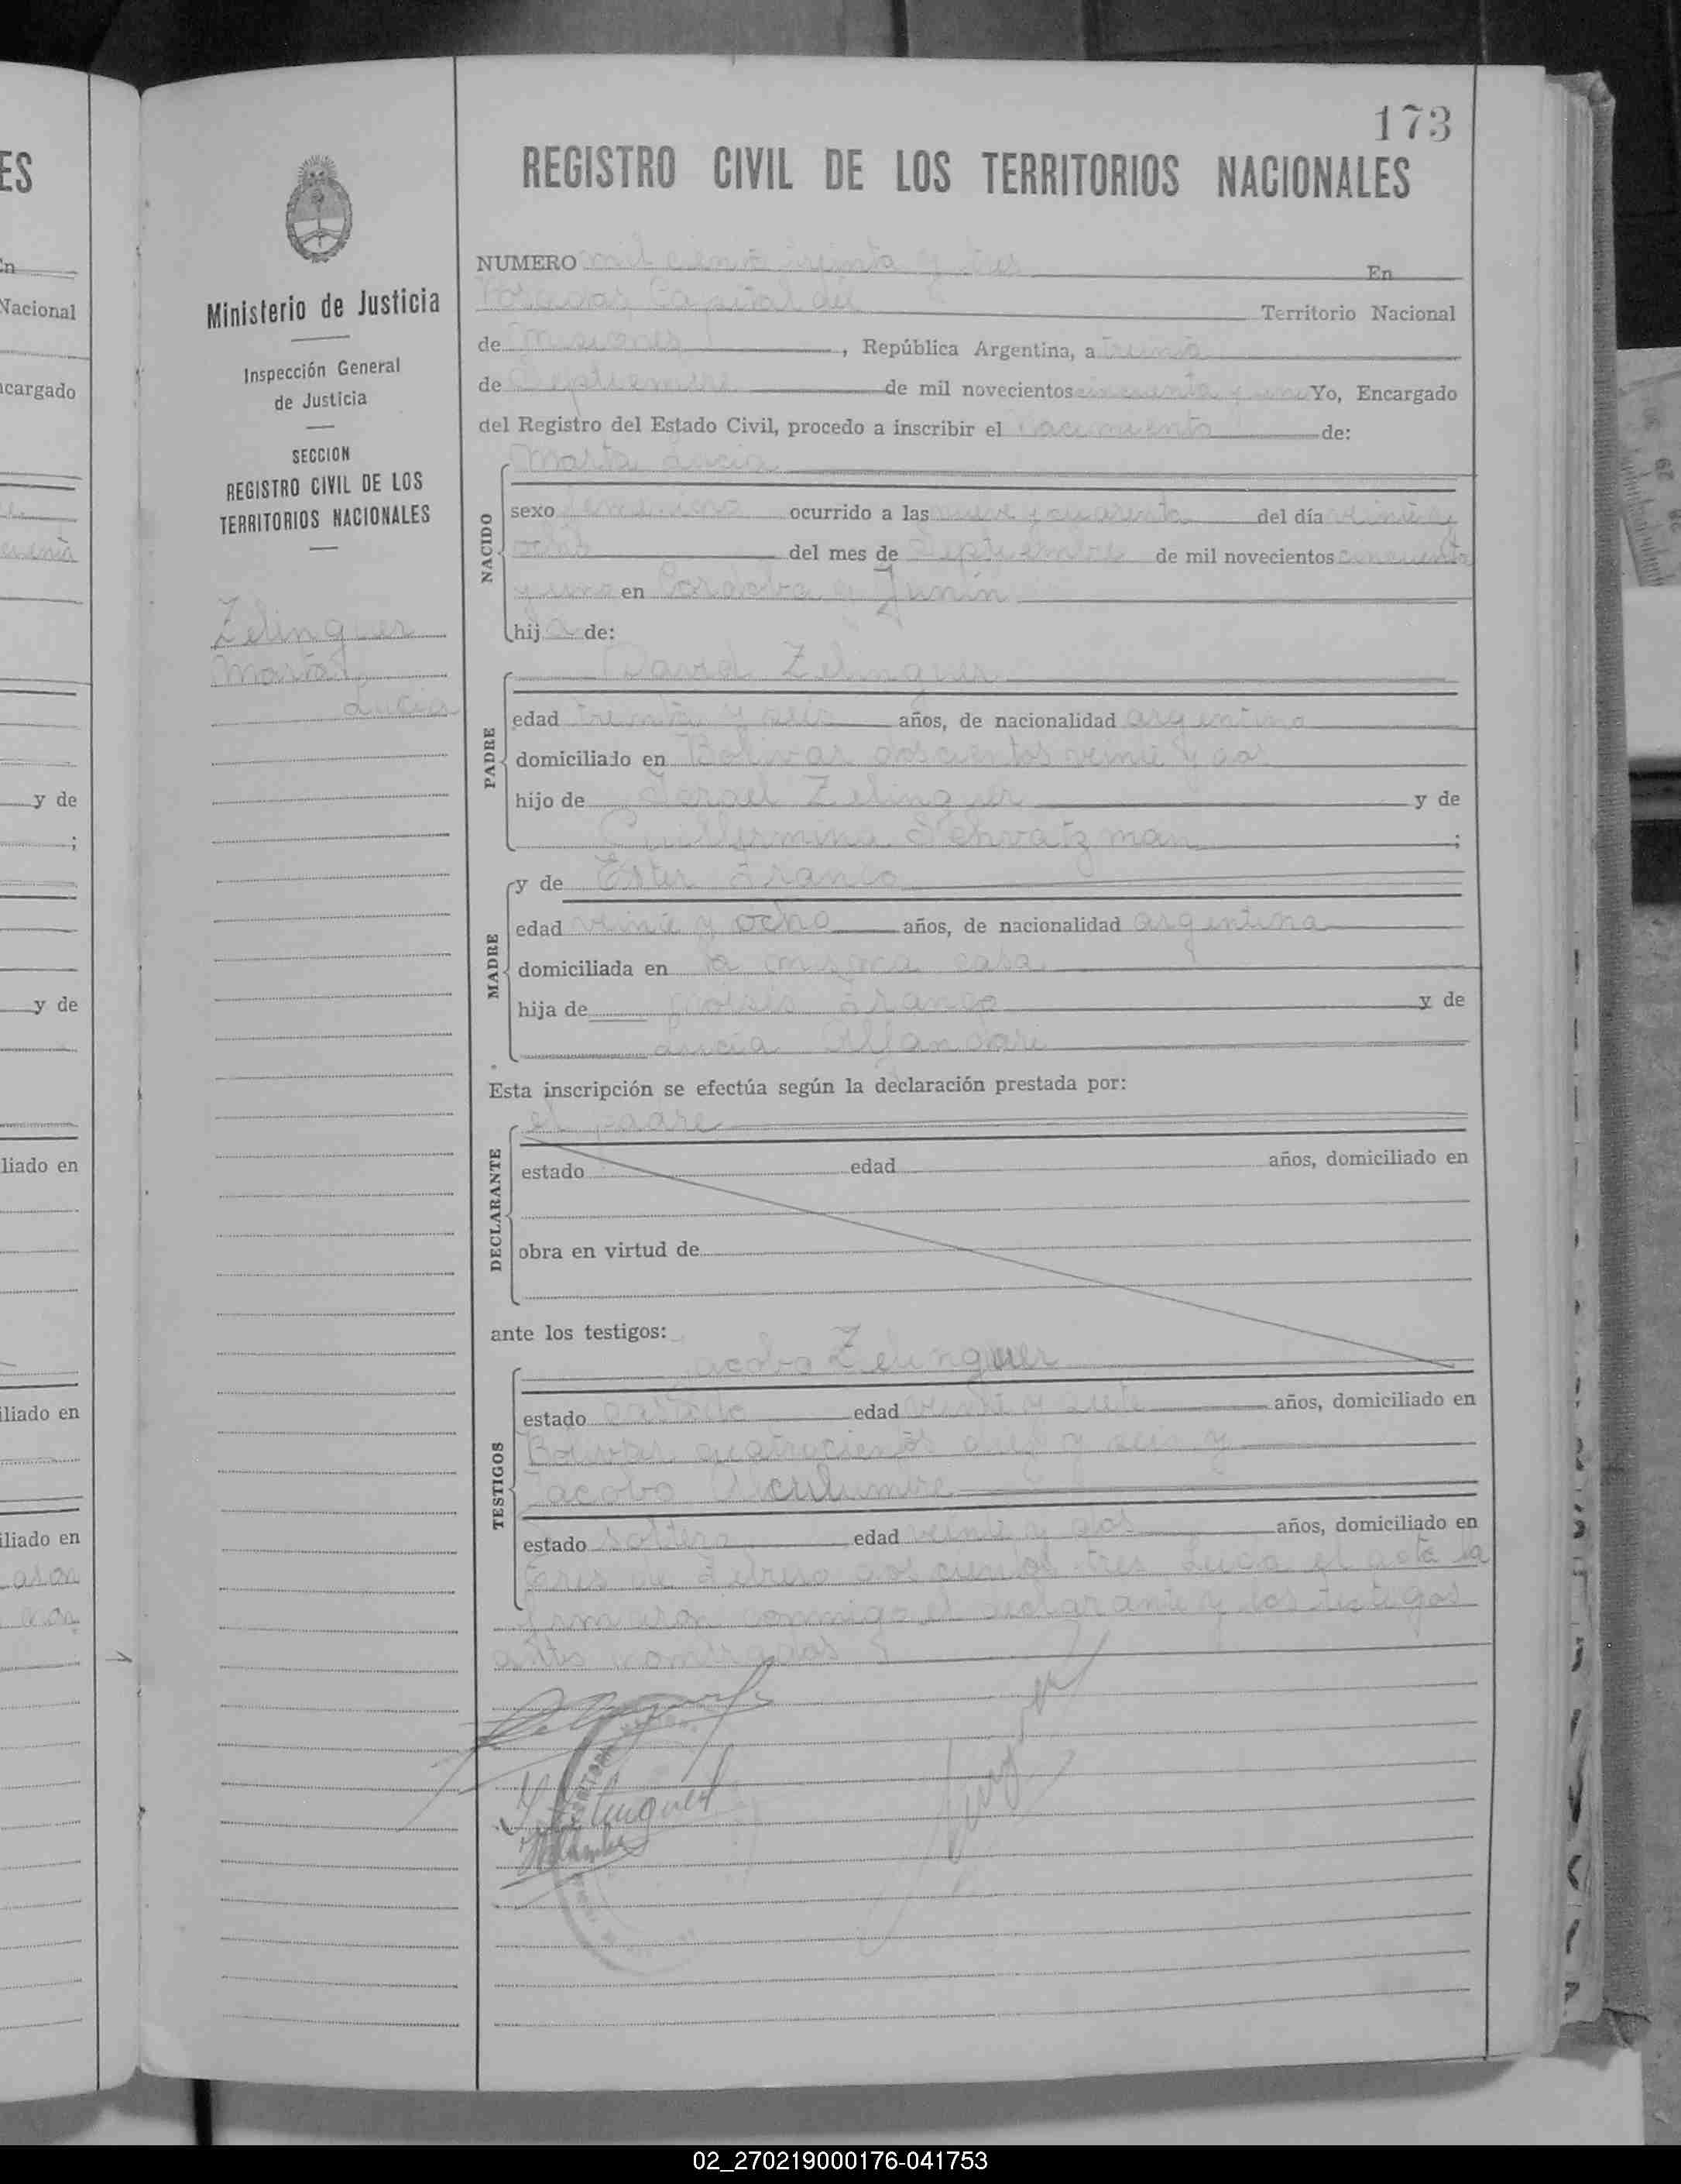 173
REGISTRO CIVIL DE LOS TERRITORIOS NACIONALES
Ministerio de Justicia
Inspección General
de Justicia
SECCION
REGISTRO CIVIL DE LOS
TERRITORIOS NACIONALES
Zelinguer
Marta
Lucia
NUMERO mil ciento treinta y tres En
Posadas Capital del Territorio Nacional
de Misiones, República Argentina, a treinta
de Septiembre de mil novecientos cincuenta y uno Yo, Encargado
del Registro del Estado Civil, procedo a inscribir el nacimiento de:
NACIDO
Marta Lucia
sexo femenino ocurrido a las nueve y cuarenta del día veinte y
ocho del mes de Septiembre de mil novecientos cincuenta
y uno en Cordoba y Junín
hija de:
PADRE
David Zelinguer
edad treinta y seis años, de nacionalidad argentino
domiciliado en Bolivar doscientos veinte y dos
hijo de Israel Zelinguer y de
Guillermina Schvatzman;
MADRE
y de Ester Franco
edad veinte y ocho años, de nacionalidad argentina
domiciliada en la misma casa
hija de Franco y de
Lucia Alfandari
Esta inscripción se efectúa según la declaración prestada por:
DECLARANTE
el padre
estado edad años, domiciliado en
obra en virtud de
ante los testigos:
TESTIGOS
Jacobo Zelinguer
estado casado edad veinte y siete años, domiciliado en
Bolivar cuatrocientos diez y seis y
Jacobo
estado soltero edad veinte y dos años, domiciliado en
Tres de Febrero doscientos tres Leida el acta la
firmaron conmigo el declarante y los testigos
antes nombrados
ES
En
Nacional
cargado
y de
;
y de
liado en
iliado en
iliado en
02_270219000176-041753